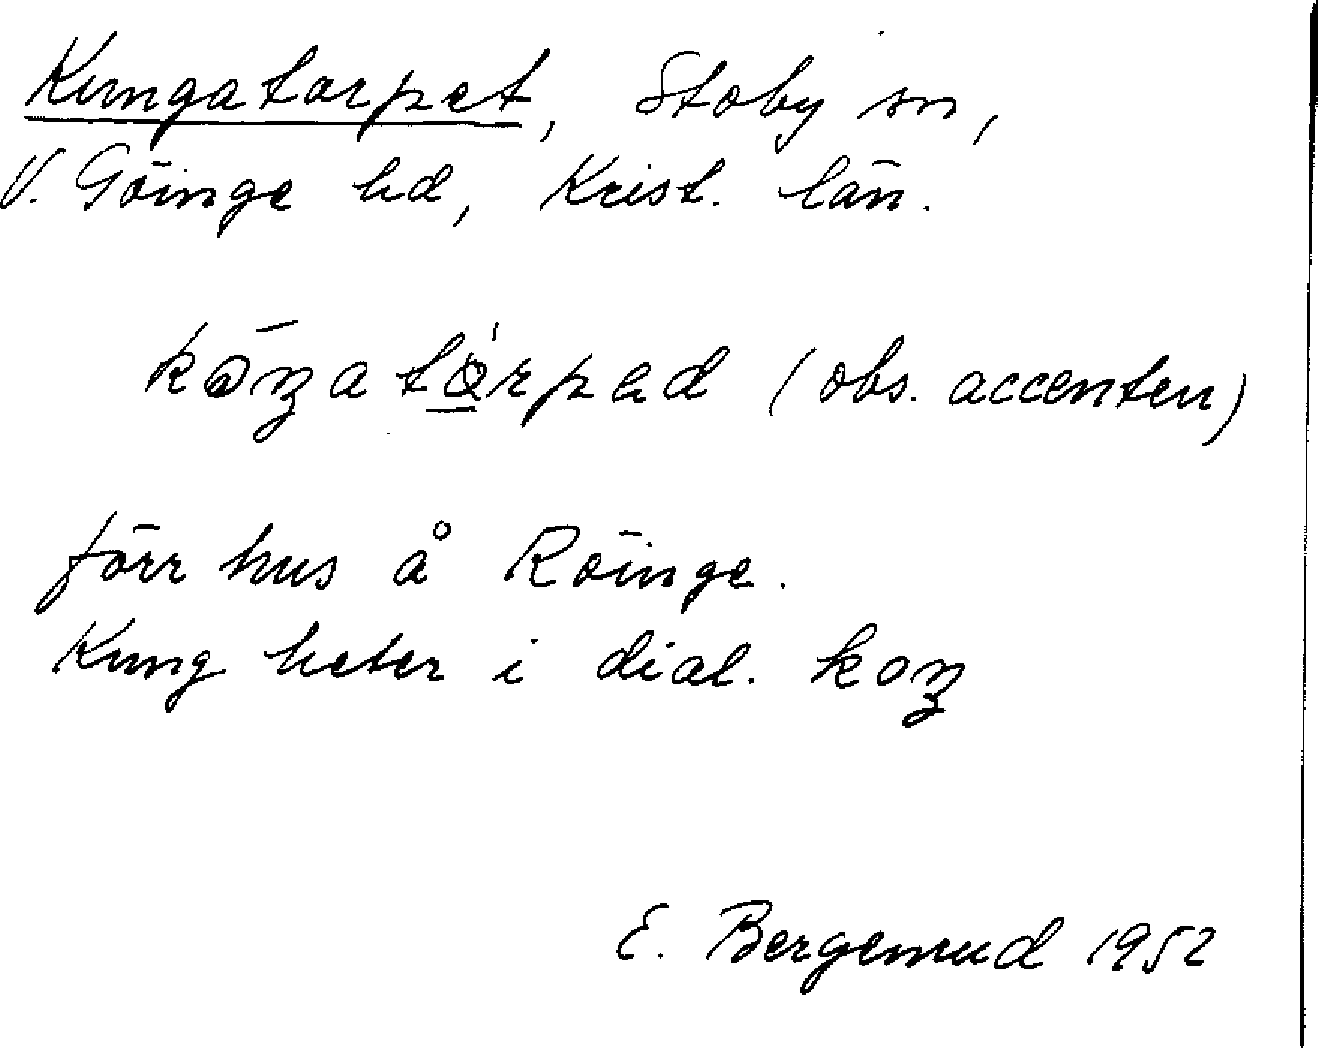 Kungatorpet, Stoby sn,
V. Göinge hd, Krist. län.
(obs. accenten)
förr hus å Röinge.
Kung heter i dial. koŋ
E. Bergemrud 1952